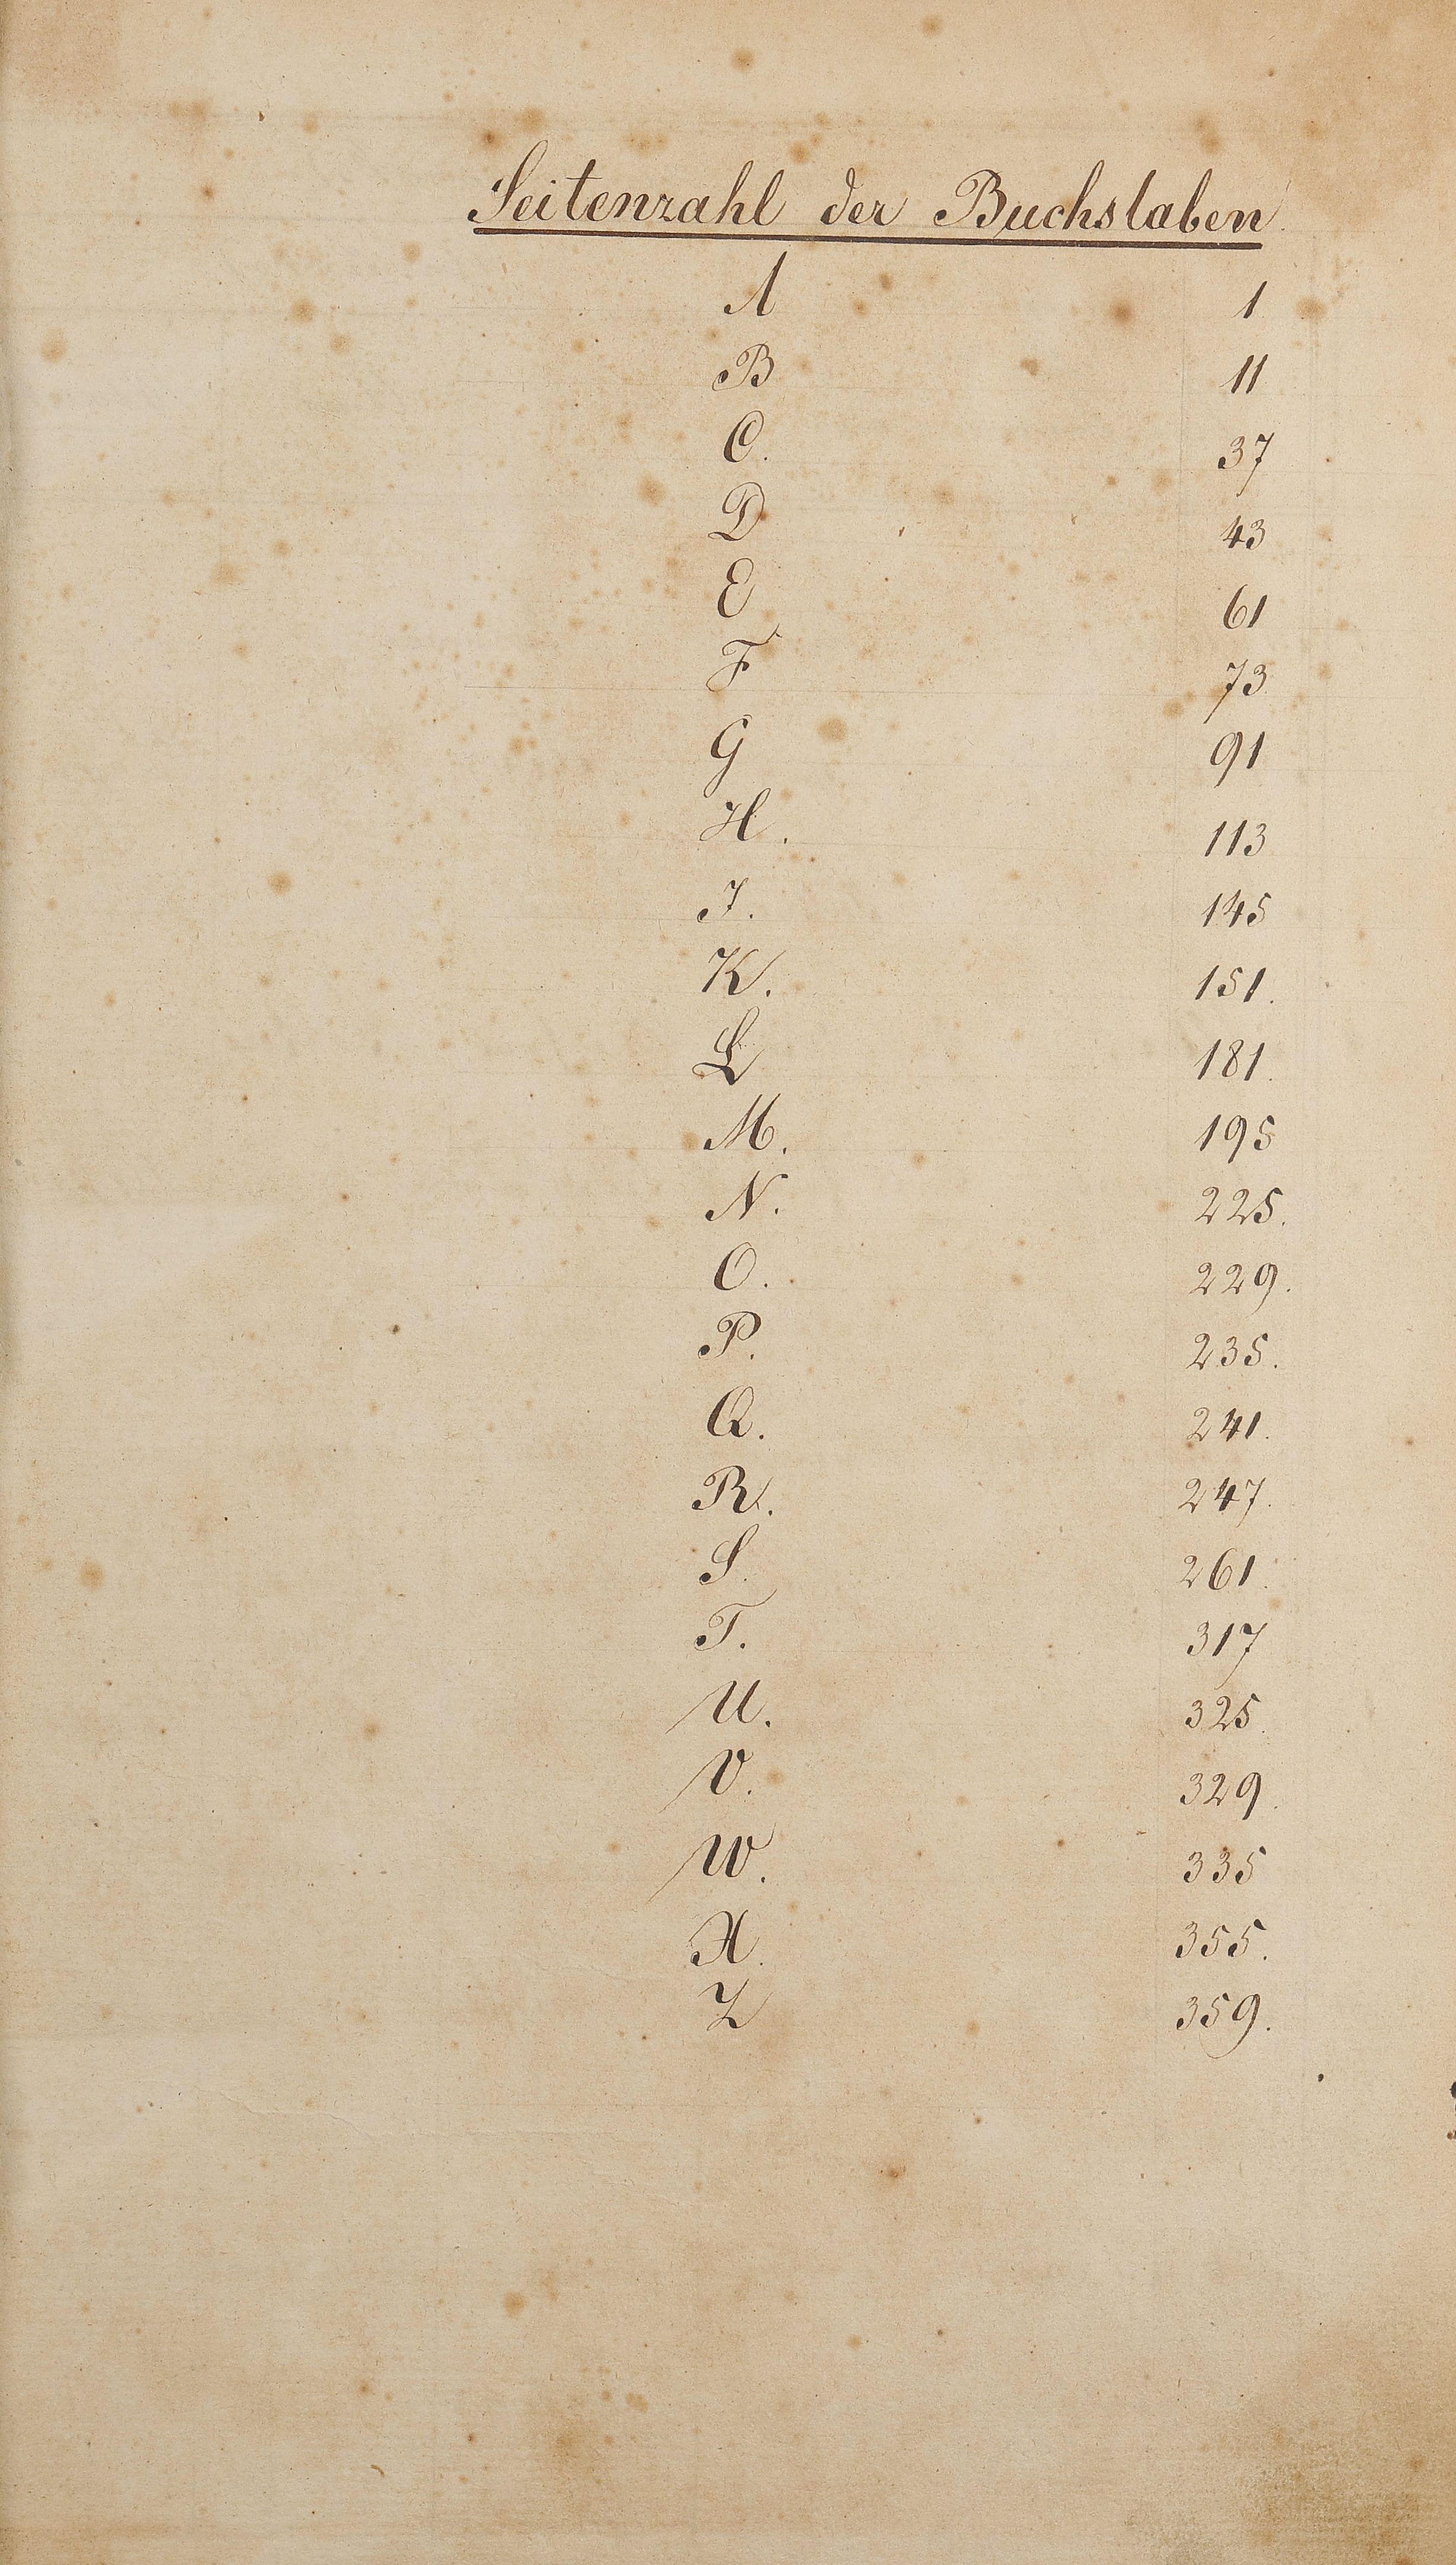 Seitenzahl der Buchstaben.
A 1
B 11
C. 37
D 43
E 61
F 73
G 91
H. 113
J. 145
K. 151.
L 181.
M. 195
N. 225.
O. 229.
P. 235.
Q. 241.
R. 247.
S. 261.
T. 317
U. 325.
V. 329.
W. 335
X. 355.
Z 359.